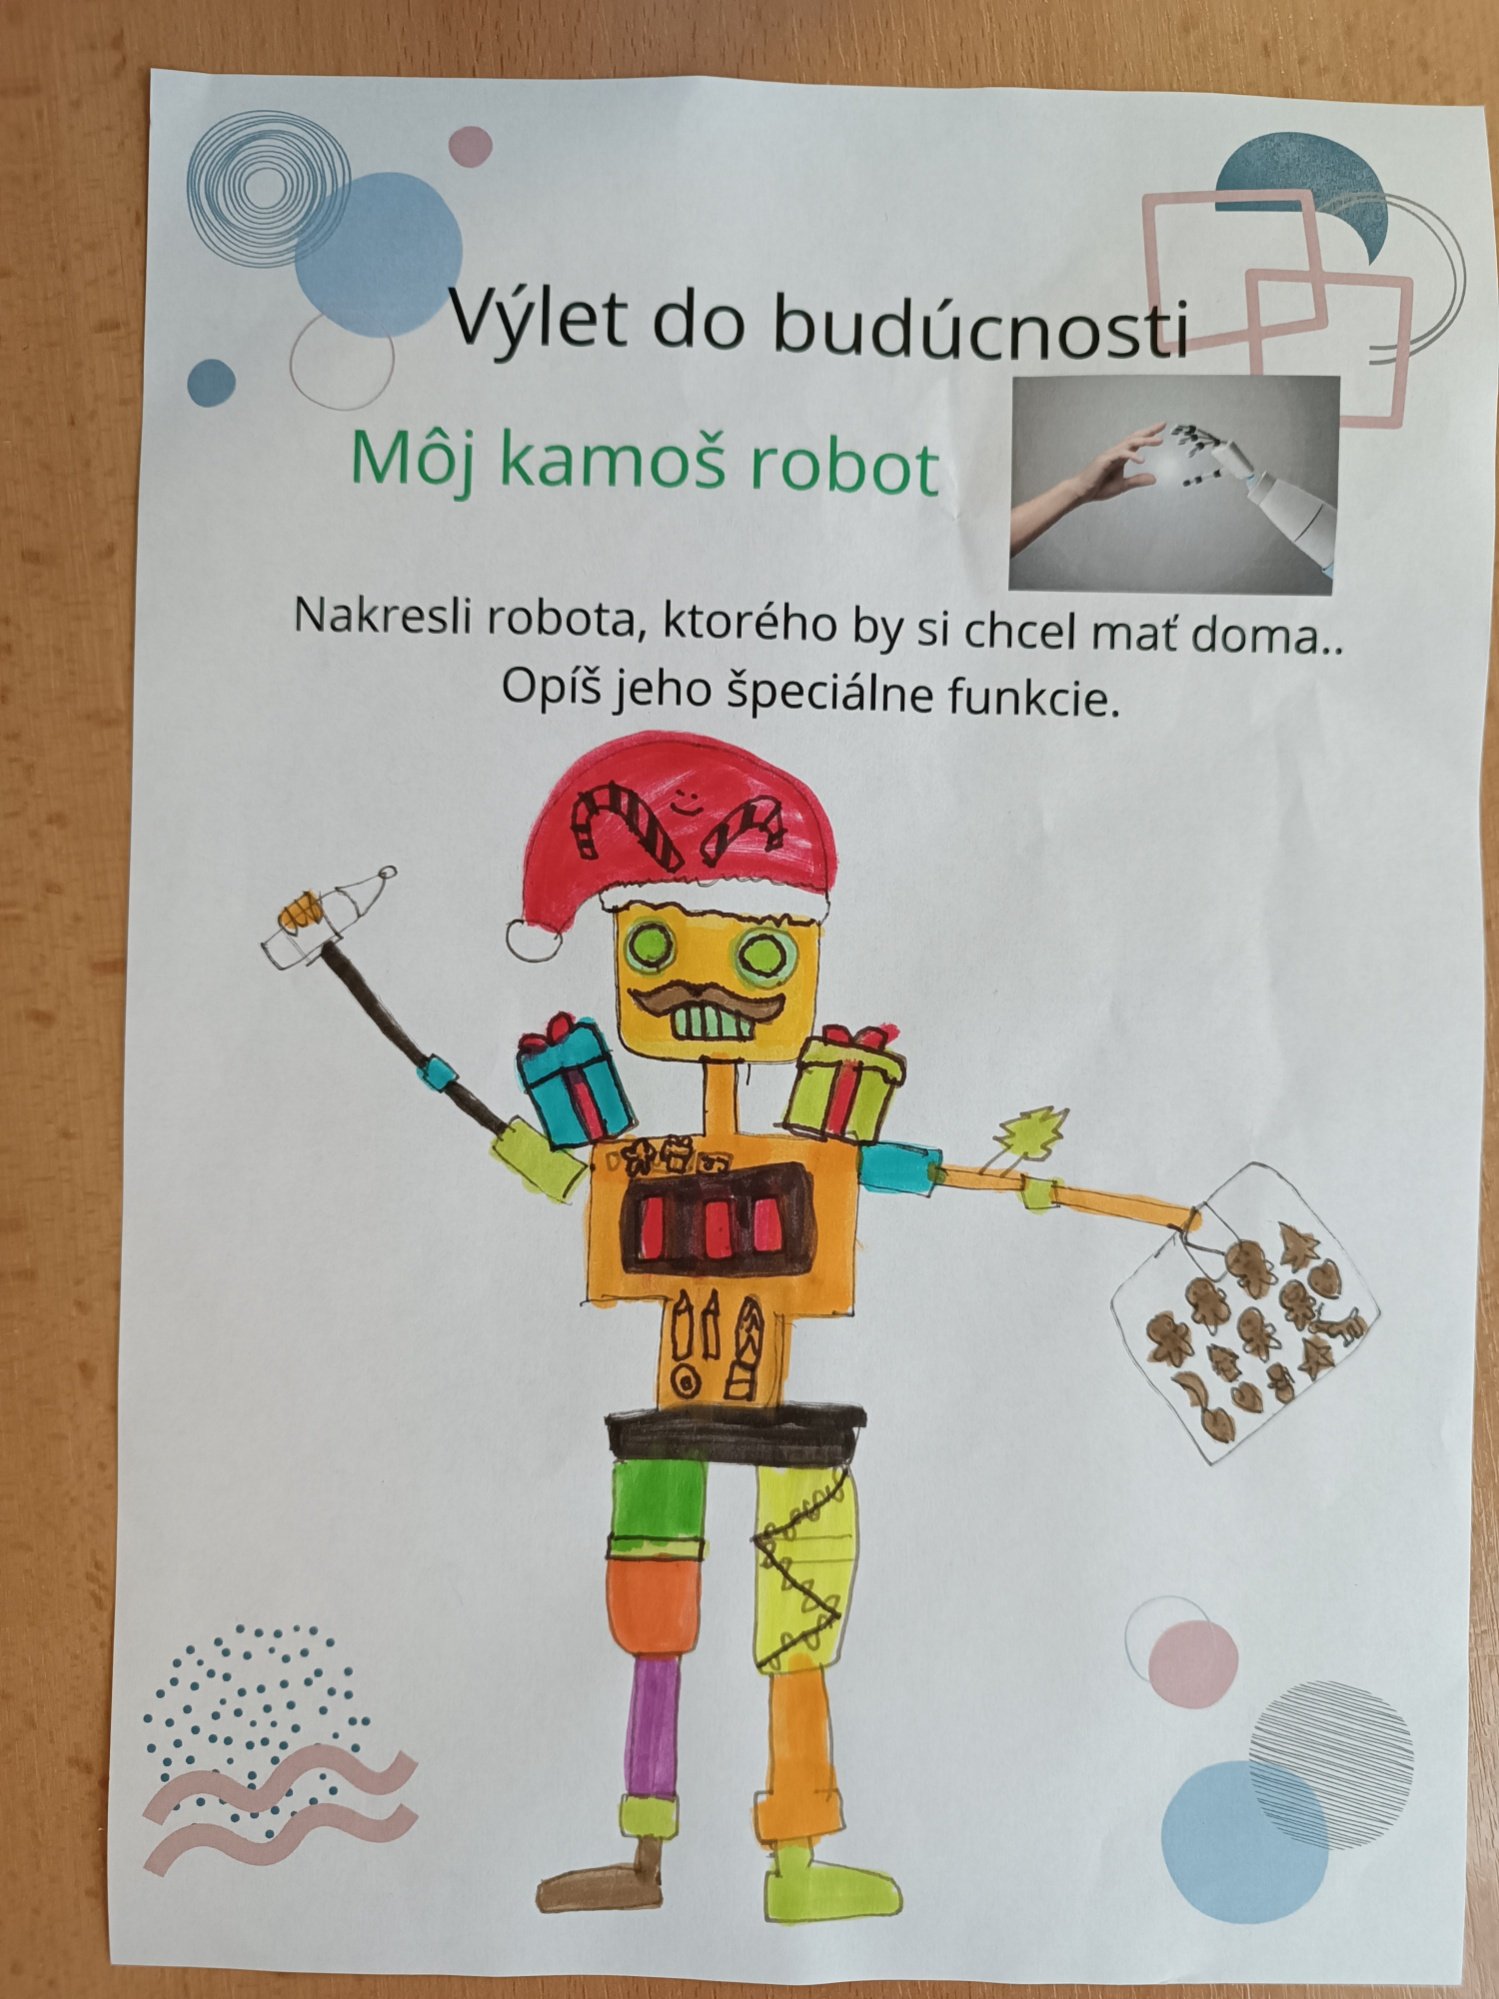 Výlet do budúcnosti
Môj kamoš robot
Nakresli robota, ktorého by si chcel mať doma..
Opíš jeho špeciálne funkcie.